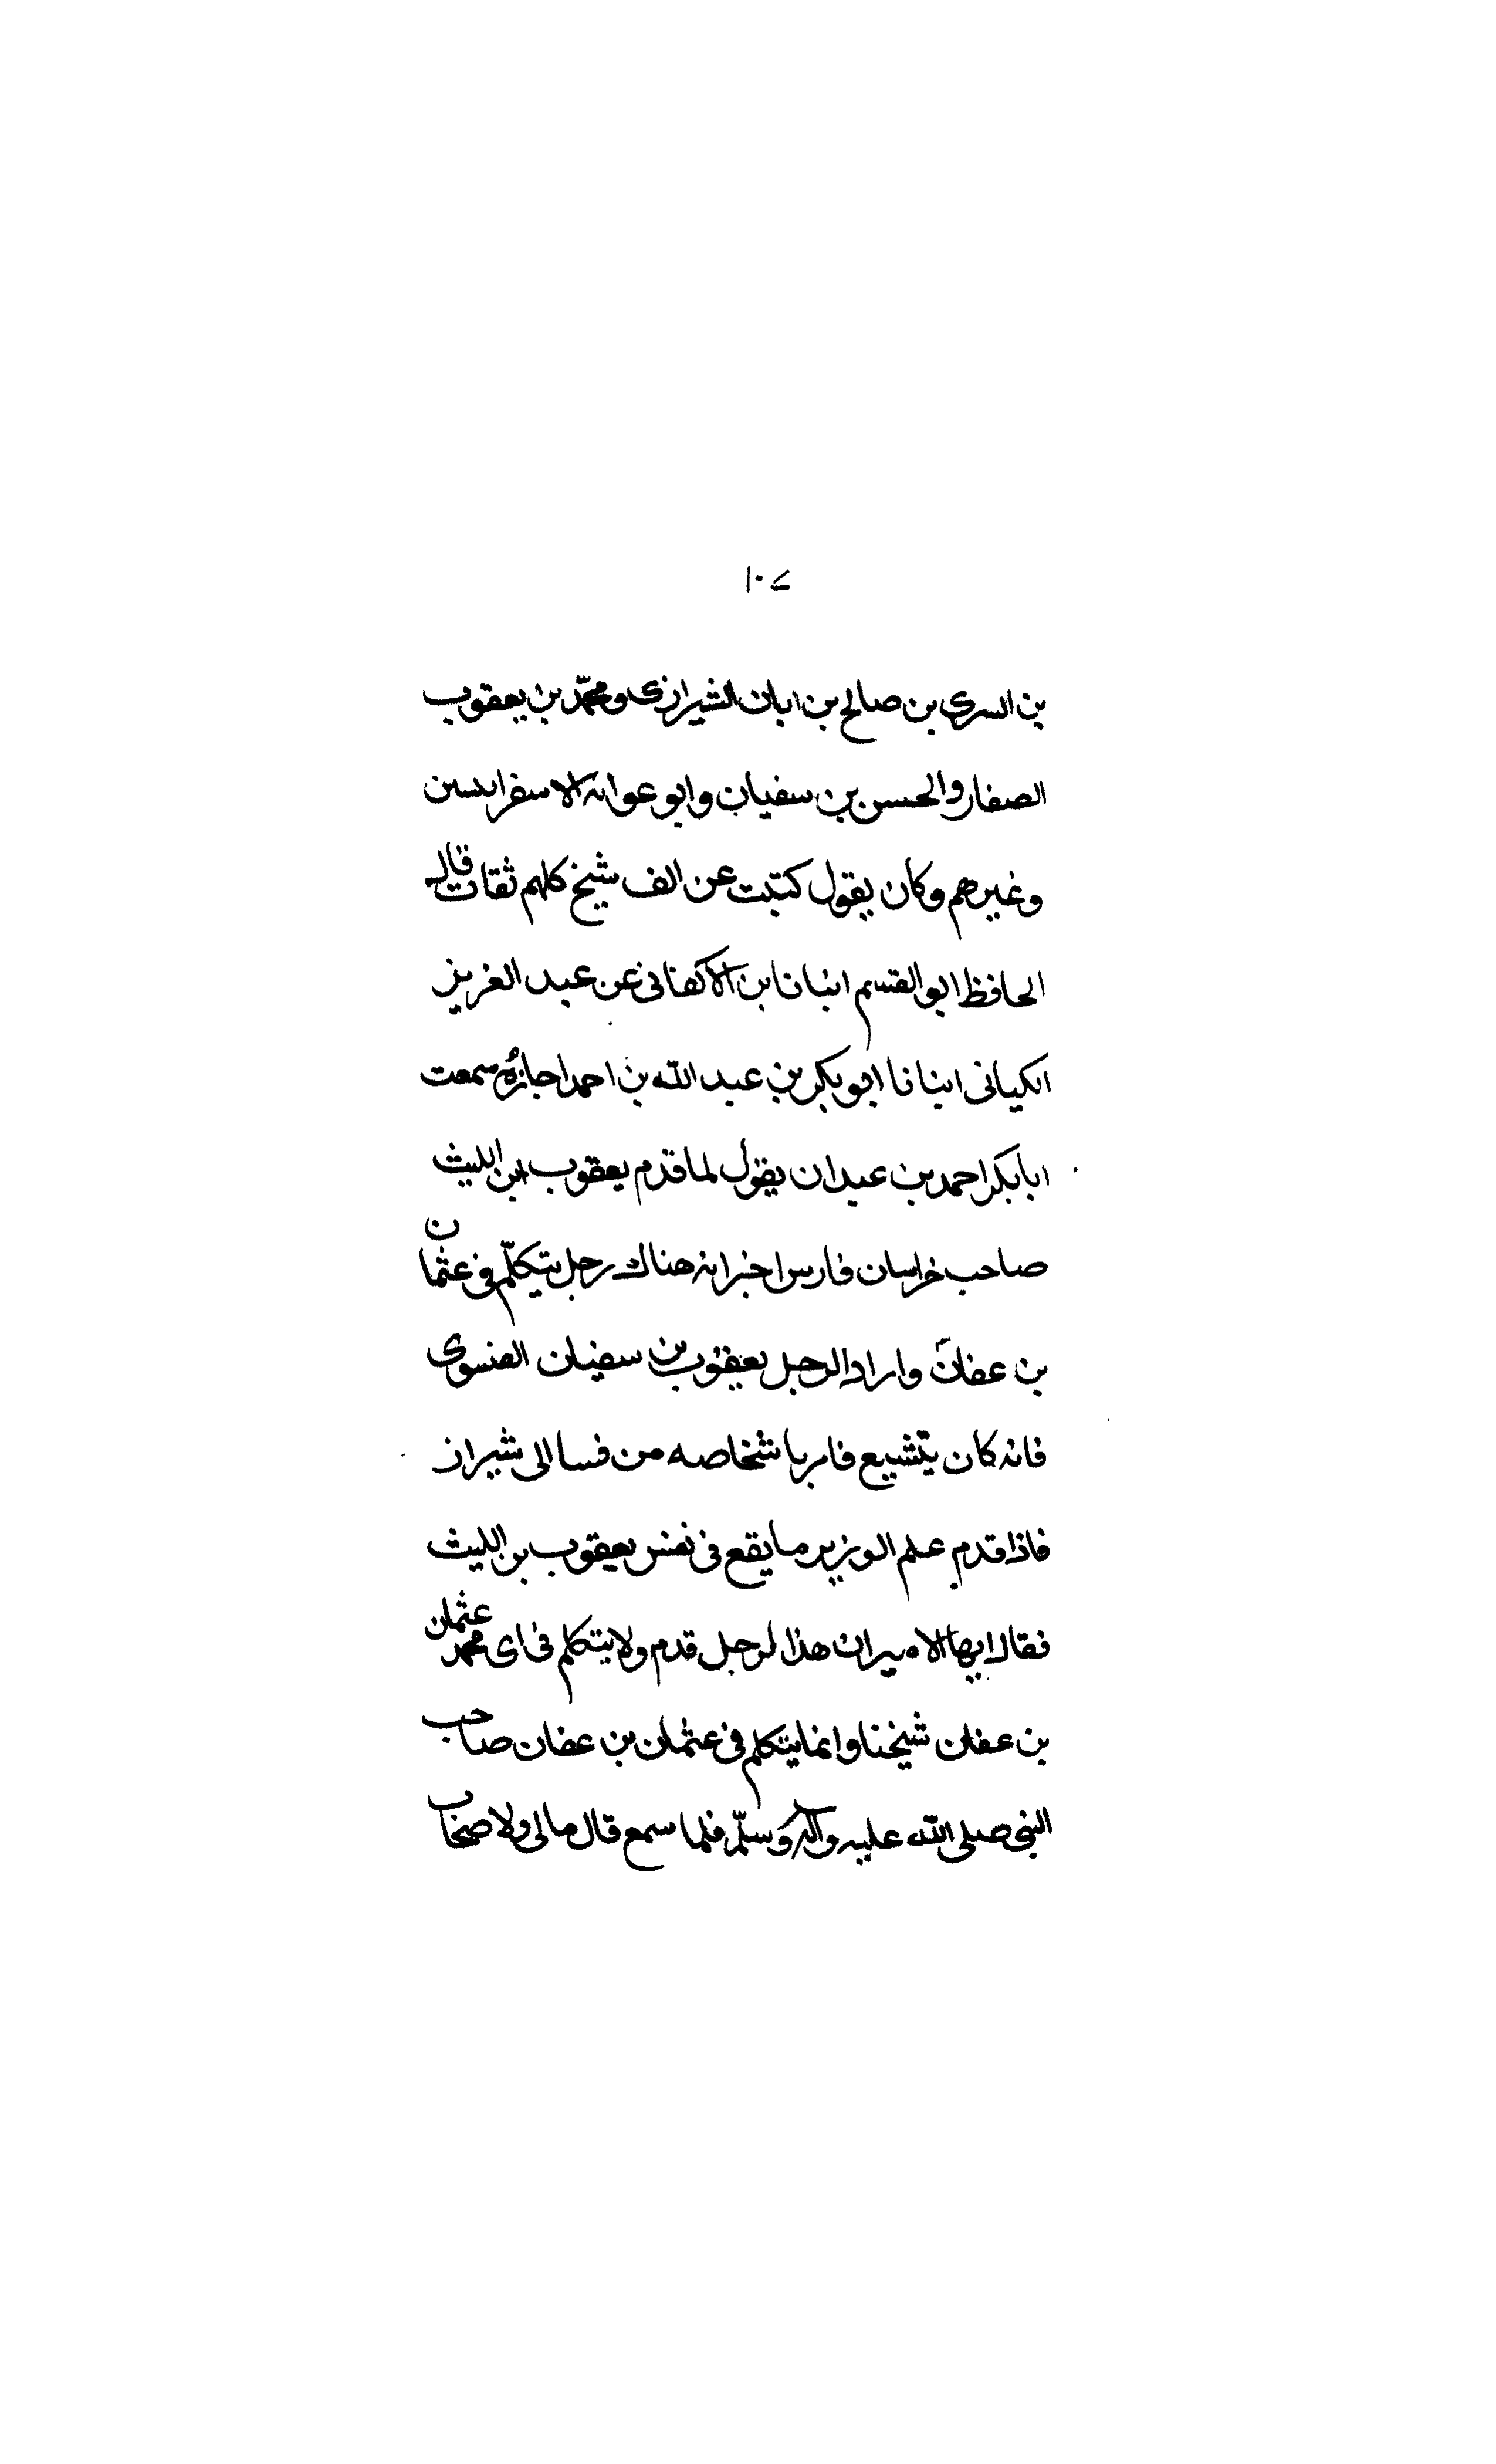 ١٠٧
بن السري بن صالح بن ابان الشيرازى ومحمّد بن يعقوب
الصفار والحسن بن سفيان وابو عوانه الاسفرايسن
وغيرهم وكان يقول كتبت عن الف شيخ كلهم ثقات قال
الحافظ ابو القسم انبانا بن الاكفانى عن عبد العزيز
الكيانى انبانا ابو بكر بن عبد الله بن احمد اجازه سمعت
ابا بكر احمد بن عبدان يقول لما قدم يعقوب ابن الليث
صاحب خراسان فارس اخبر انه هناك رجل يتكلّم فى عثمان
بن عفان واراد الرجل يعقوب بن سفيان الفسوى
فانه كان يتشيع فامر باشخاصه من فسا الى شيراز
فاذا قدم علم الوزير ما يقع فى نفس يعقوب بن الليث
فقال ايها الامير ان هذا لرجل قدم ولا يتكلم فى اى محمد عثمان
بن عفان شيخنا وانما يتكلم فى عثمان بن عفان صاحب
النبى صلى الله عليه وآله وسلّم فلما سمع قال مالى ولاصحاب